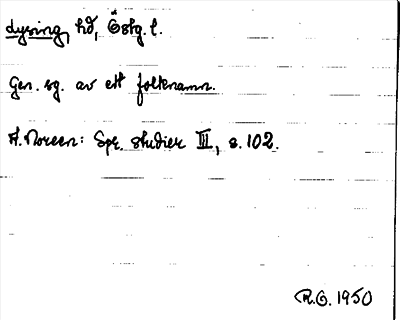 Lysing, hd, Östg. l.
Gen. sg. av ett folknamn.
A. Noreen: Spr. studier III, s. 102.
R.G. 1950